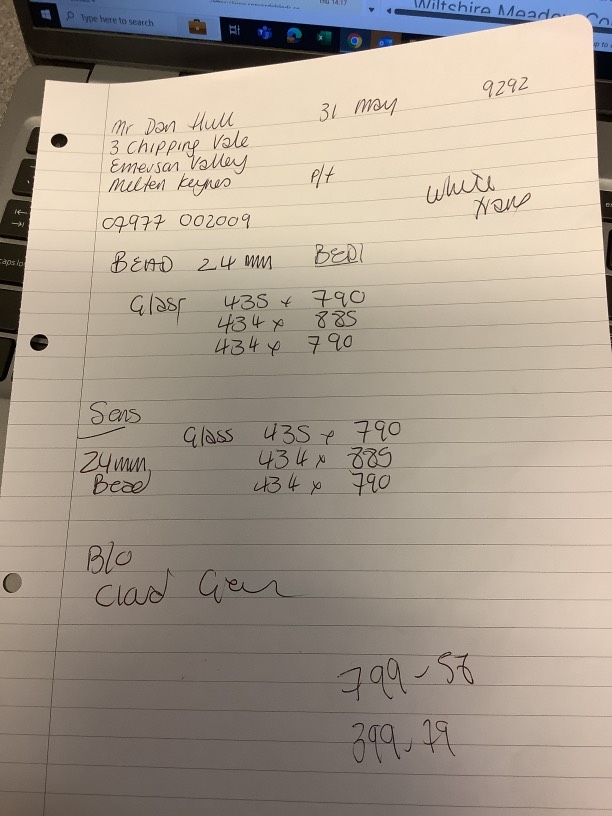 Type here to search
Thu 14:17
Wiltshire Meado
Co
Mr Dan Hull 31 May 9292
3 Chipping Vale
Emerson Valley
Milten Keynes P/t
White
trans
07977 002009
BEAD 24 mm BED1
Glass 435 x 790
434 x 885
434 x 790
Sons
Glass 435 x 790
24mm 434 x 885
Bead 434 x 790
B/O
Clad Gear
799-58
399-79